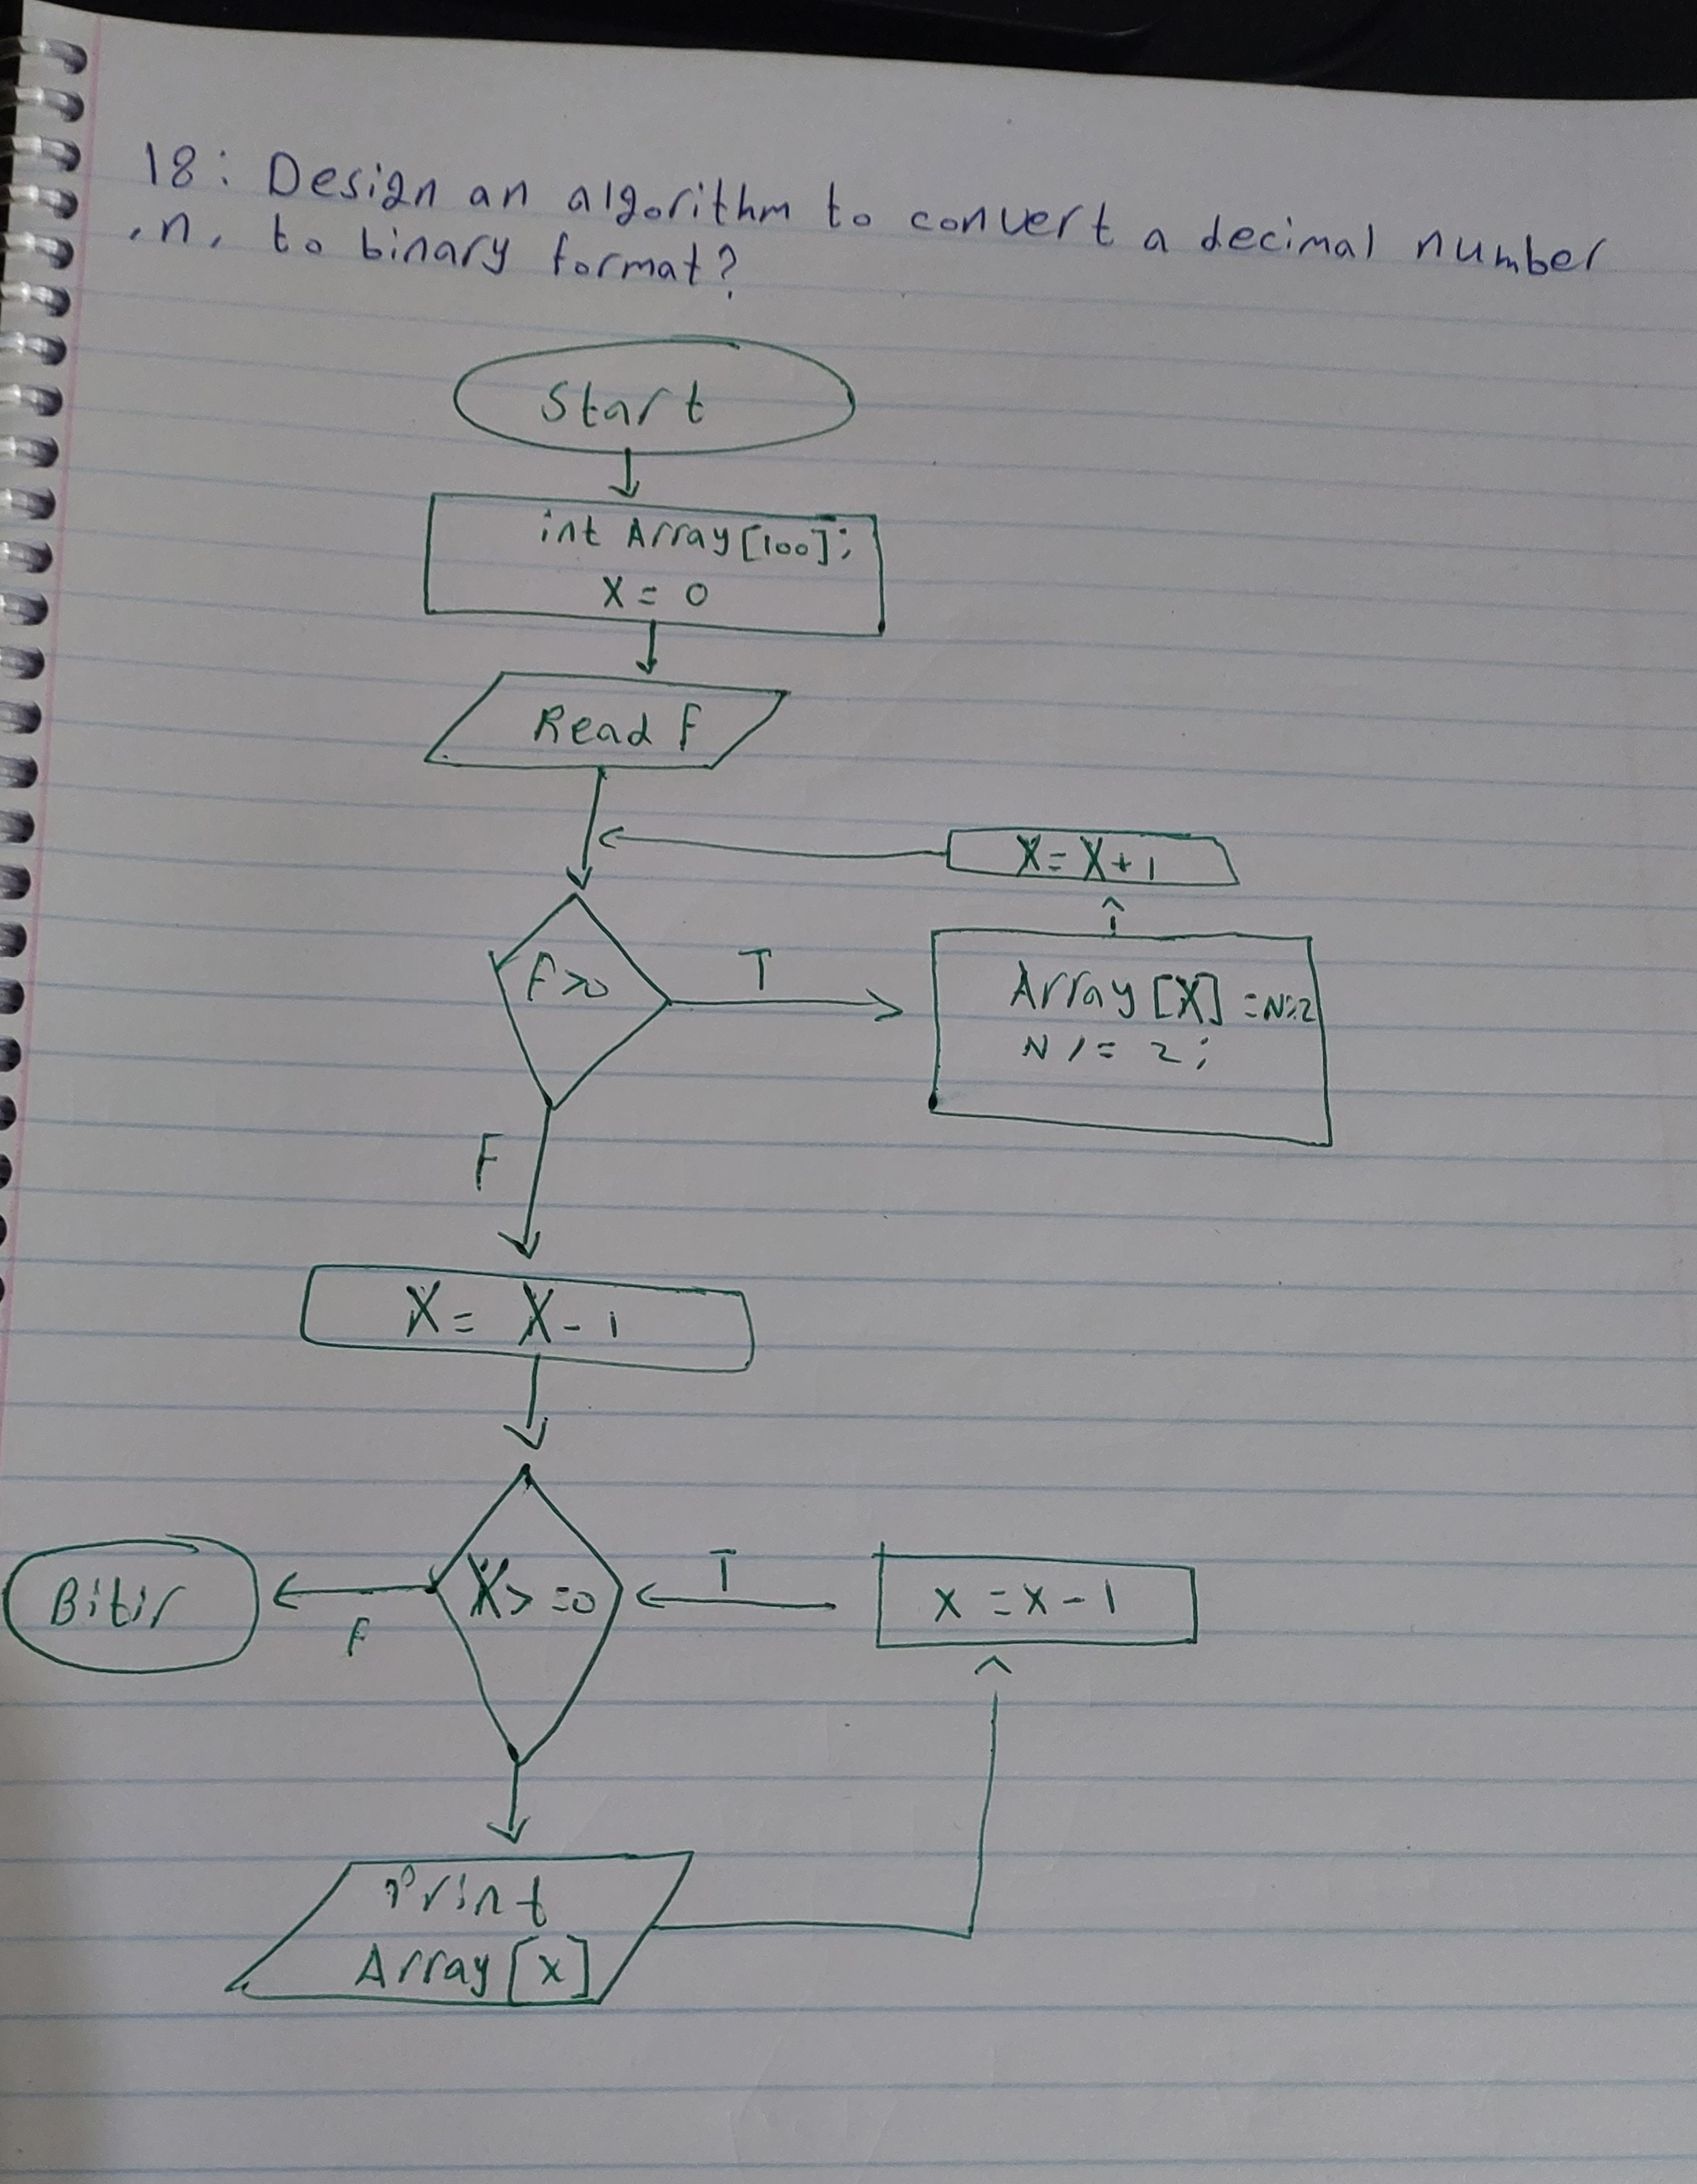 18: Design an algorithm to convert a decimal number
,n, to binary format?
Start
int Array[100];
X = 0
Read F
X = X + 1
F>0
T
Array [X] =N%2
N /= 2;
F
X = X - 1
Bitir
F
X> =0
T
x = x - 1
Print
Array [x]